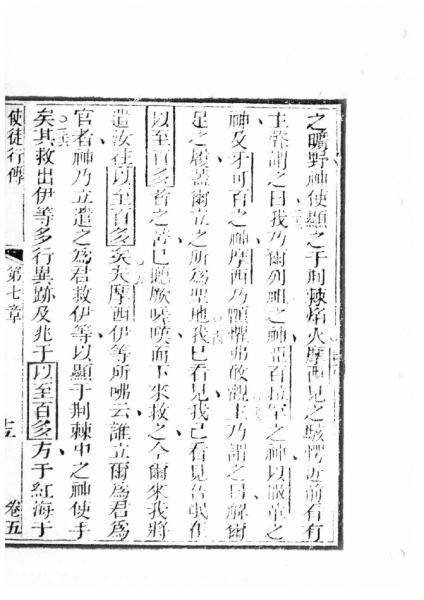 之曠野神使顯之于荆棘焰火摩西見之駭愕近前看有
主聲謂之曰我乃爾列祖之神亞百拉罕之神以撒革之
神及牙可百之神摩西乃顫懼弗敢觀主乃謂之曰解爾
足之履蓋爾立之所為聖地我已看見我已看見吾氓在
以至百多者之苦已聽厥嗟嘆而下來救之今爾來我將
遣汝往以至百多矣夫摩西伊等所咈云誰立爾為君為
官者神乃立遣之為君救伊等以顯于荆棘中之神使手
矣其救出伊等多行異跡及兆于以至百多方于紅海于
使徒行傳
第七章
卷五